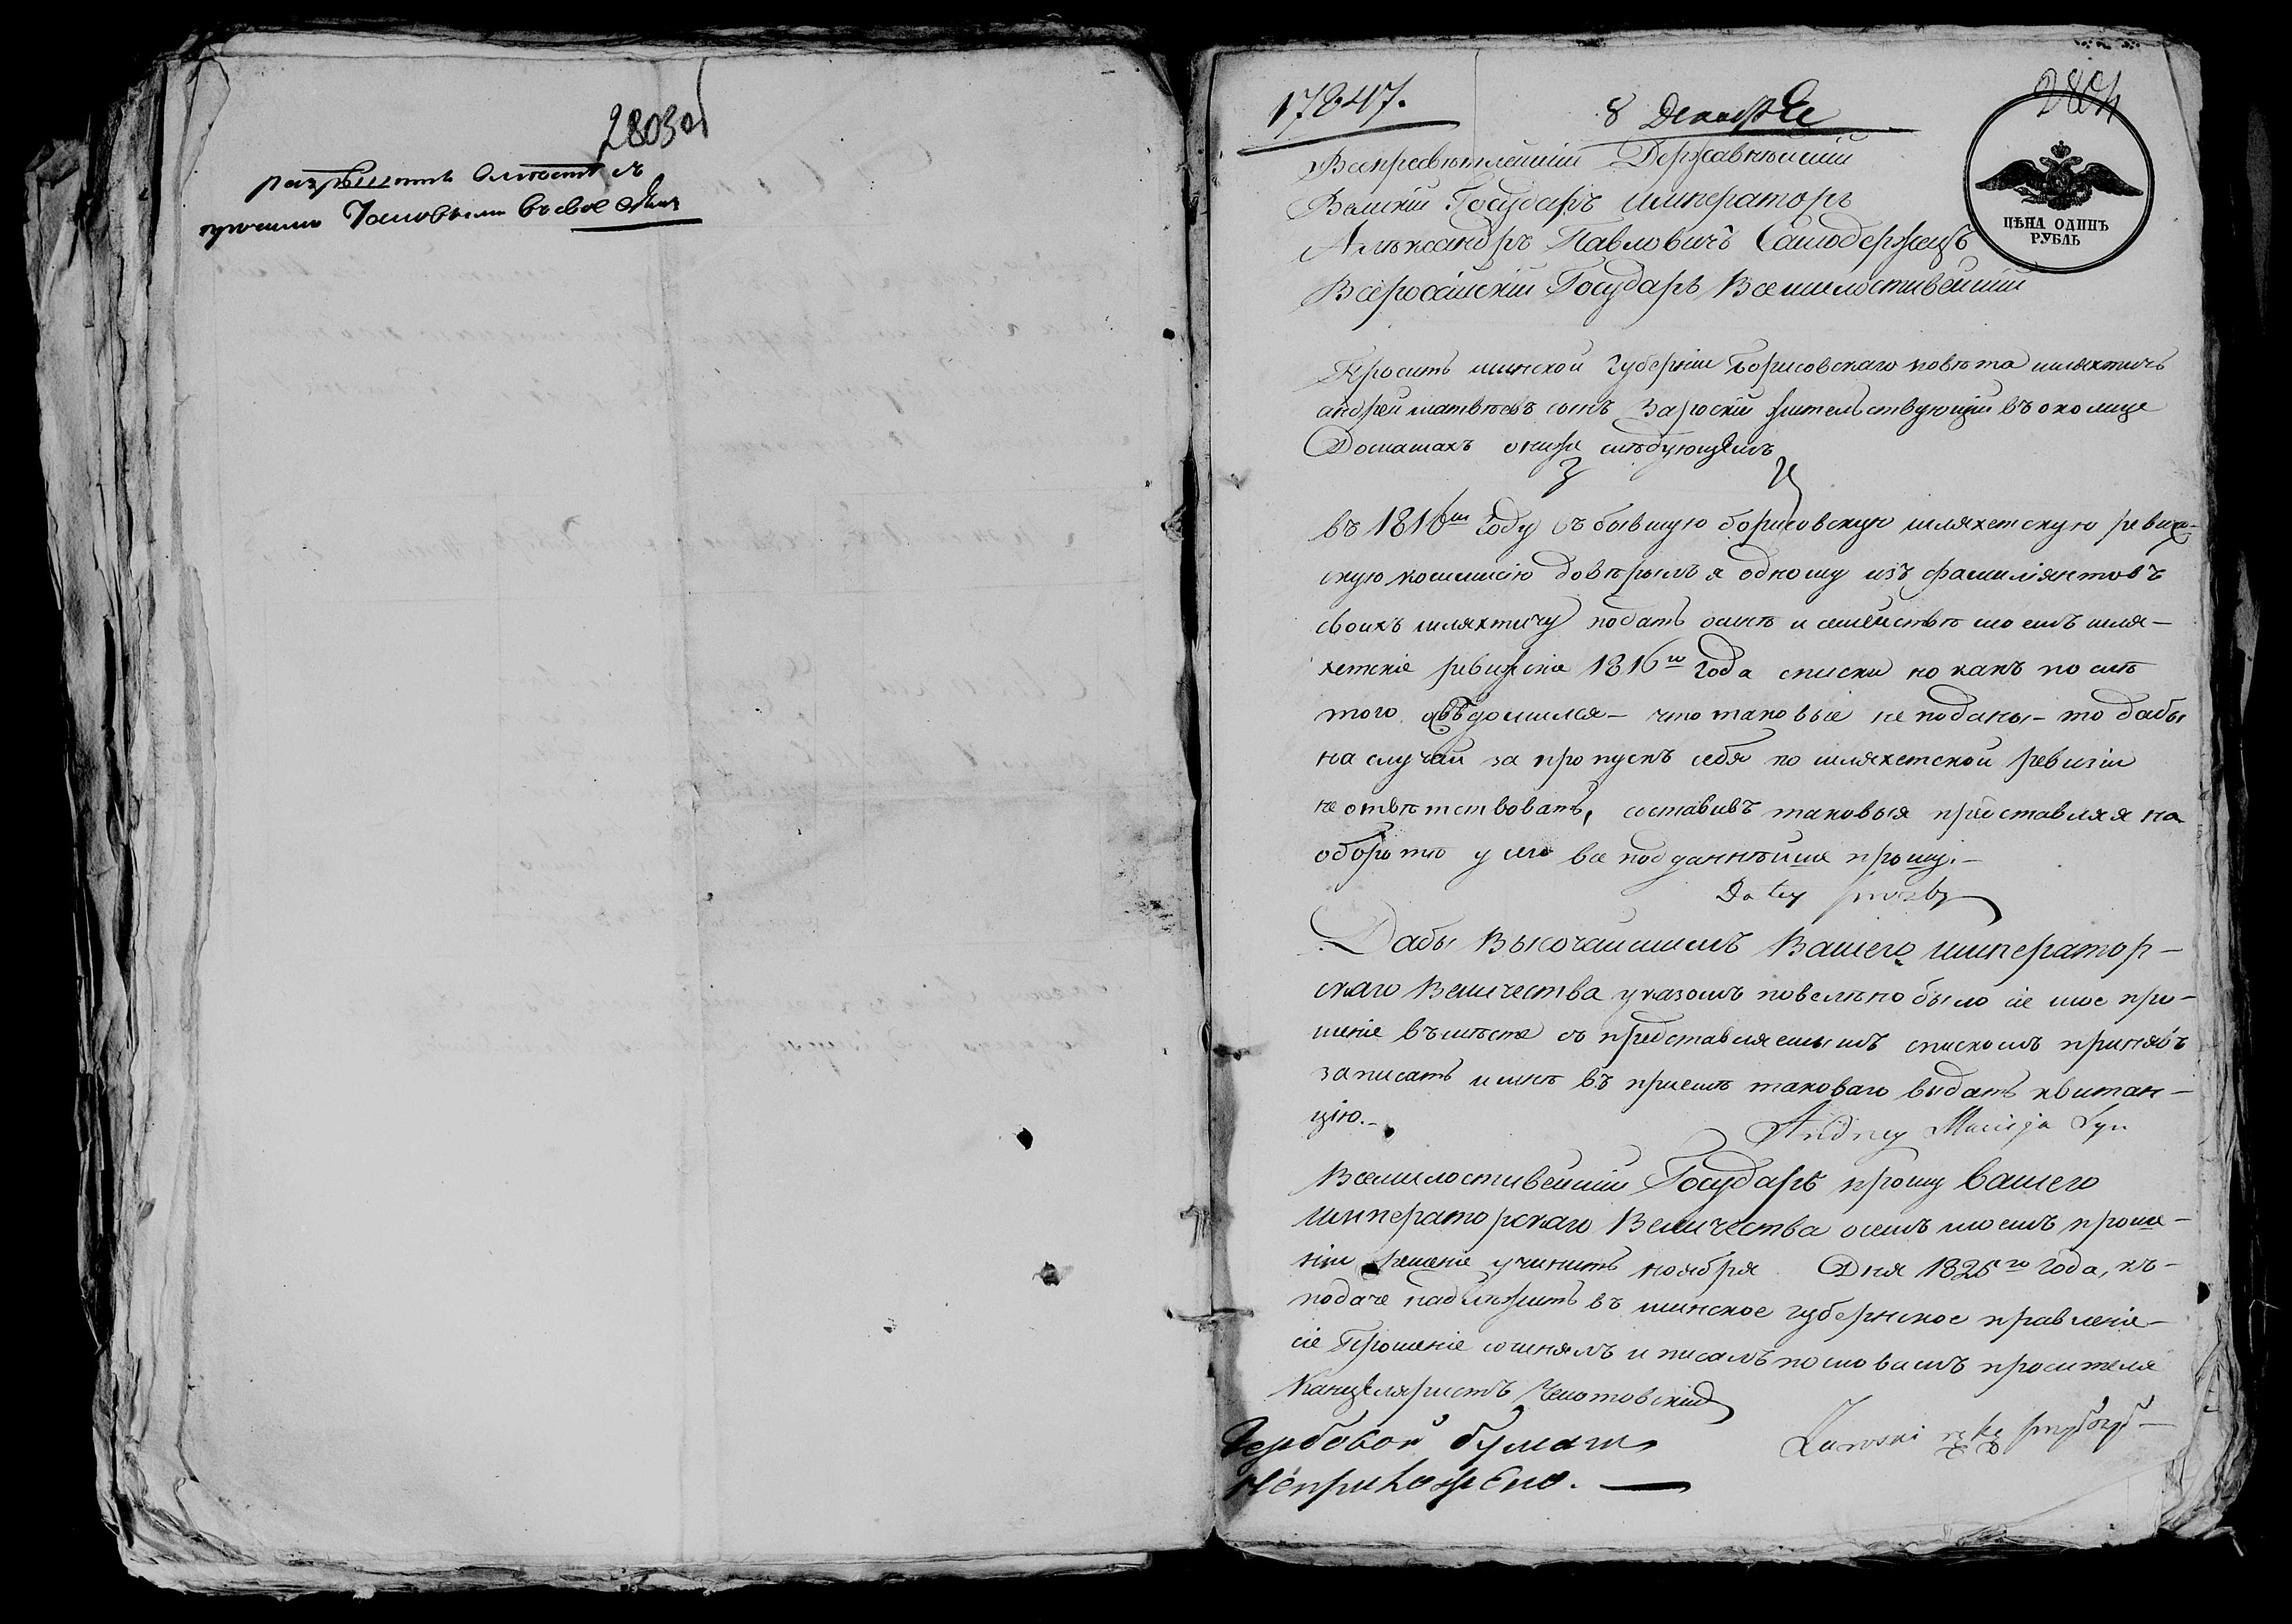 2803об
разрешить вместе съ
прочими таковыми въ свое время
17847.
8 Декабря
2804
ЦѢНА ОДИНЪ
РУБЛЬ
Всепресвѣтлейшій Державнѣйшій
Великій Государь Императоръ
Александръ Павловичъ Самодержецъ
Всеросійскій Государь Всемилостивейшій
Просить минской губерніи Борисовскаго повѣта шляхтичъ
андрей матвѣевъ сынъ Зароскій жительствующій въ околице
Домашахъ о ниже слѣдующемъ
въ 1816мъ году въ бывшую борисовскую шляхетскую ревиз-
скую комисію довѣрилъ я одному изъ фамиліянтовъ
своихъ шляхтичу подать о мнѣ и семействѣ моемъ шля-
хетскіе ревижскіе 1816го года списки но какъ послѣ
того увѣдомился - что таковые не поданы - то дабы
на случай за пропускъ себя по шляхетской ревизіи
не отвѣтствовать, составивъ таковыя представляя на
оборотѣ у сего всеподданнѣйше прошу.-
Do tey prozby
Дабы Высочайшимъ Вашего император-
скаго Величества указомъ повелѣно было сіе мое про-
шеніе въмѣсте съ представляемымъ спискомъ принявъ
записать и мнѣ въ пріемѣ таковаго выдать квитан-
цію.-
Andrey Macieja Syn
Всемилостивейшій Государь прошу вашего
императорскаго Величества о семъ моемъ проше-
ніи решеніе учинить ноября Дня 1825го года, къ-
подаче надлежитъ въ минское губернское правленіе-
сіе Прошеніе сочинялъ и писалъ по словамъ просителя
Канцеляристъ
Zaroski ręką
Гербовой бумаги
неприложено.